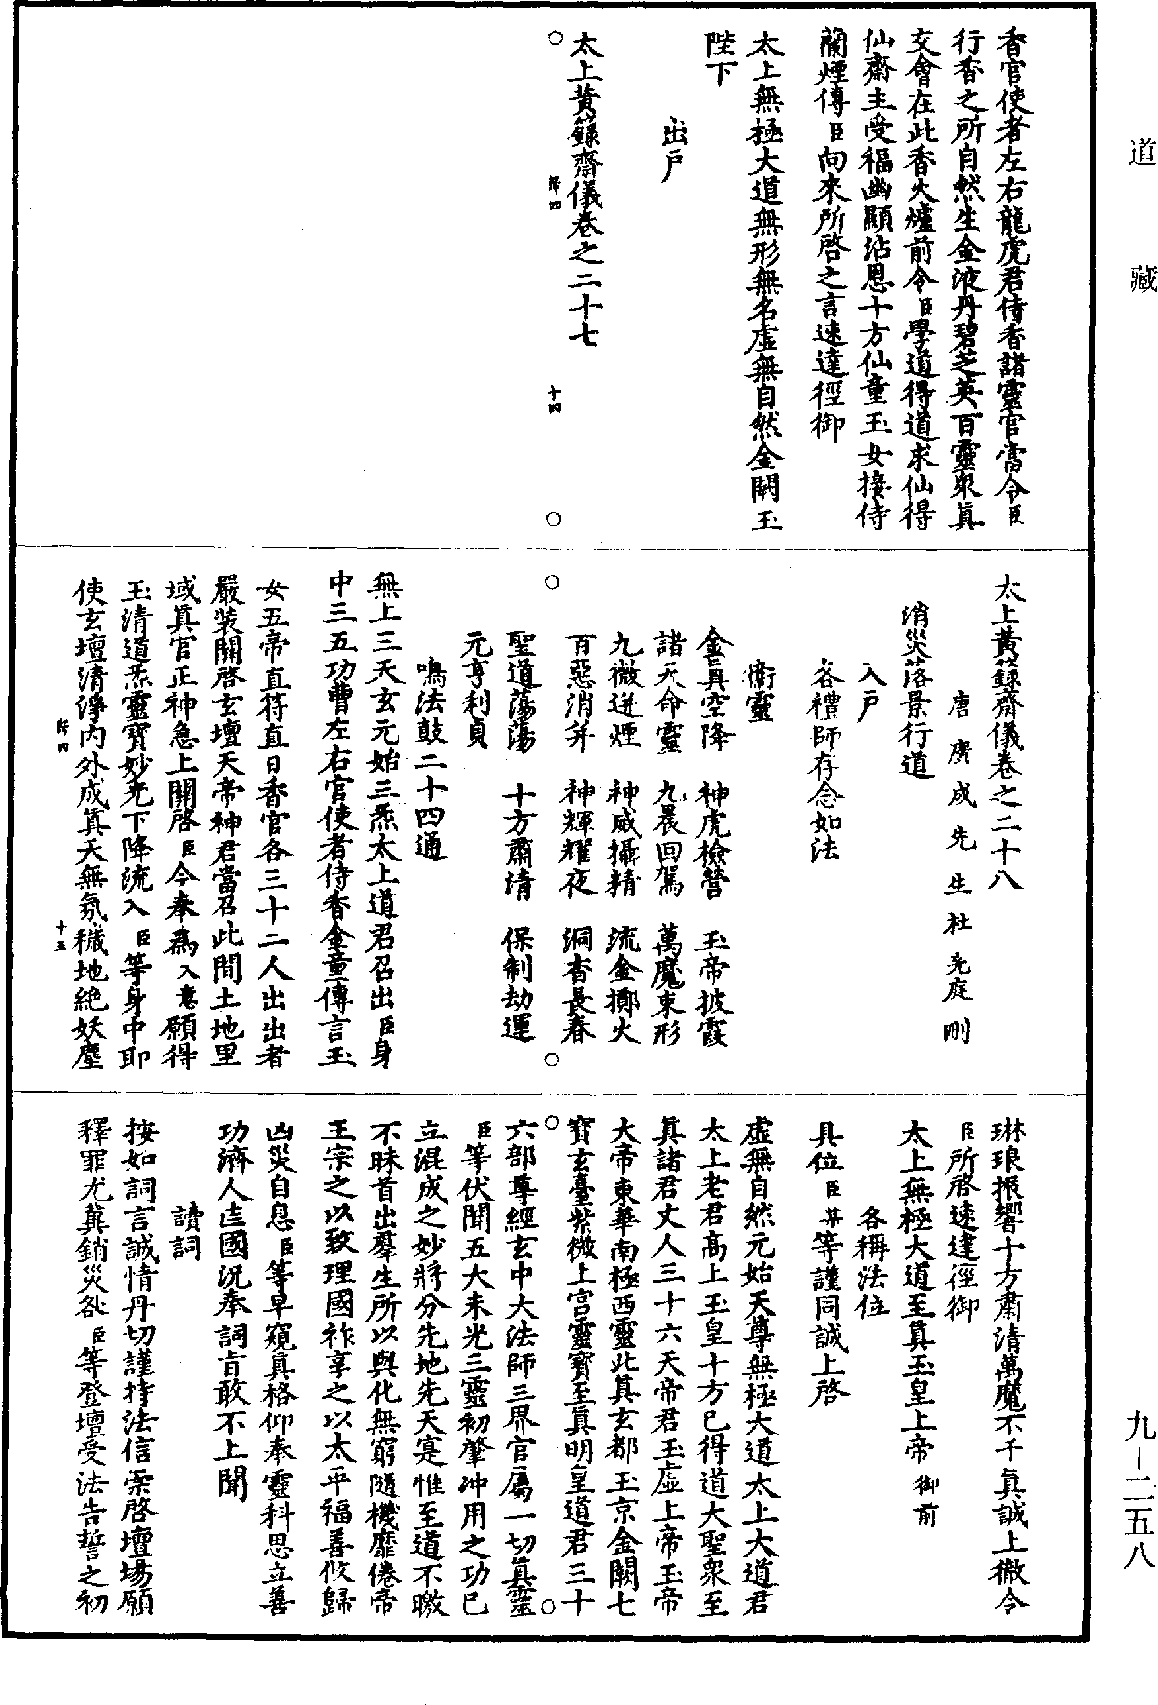 道藏
香官使者左右龍虎君侍香諸靈官當令臣
行香之所自然生金液丹碧芝英百靈眾真
交會在此香火爐前令臣學道得道求仙得
仙齋主受福幽顯沾恩十方仙童玉女接侍
蘭煙傳臣向來所啓之言速達徑御
太上無極大道無形無名虛無自然金闕玉
陛下
出戶
太上黃籙齋儀卷之二十七
十四
太上黃籙齋儀卷之二十八
唐廣成先生杜光庭刪
消災落景行道
入戶
各禮師存念如法
衞靈
金真空降 神虎檢營 玉帝披霞
諸天命靈 九晨回駕 萬魔束形
九微迸煙 神威攝精 流金擲火
百惡消弭 神輝耀夜 洞杳長春
聖道蕩蕩 十方肅清 保制劫運
元亨利貞
鳴法鼓二十四通
無上三天玄元始三炁太上道君召出臣身
中三五功曹左右官使者侍香金童傳言玉
女五帝直符直日香官各三十二人出出者
嚴裝關啓玄壇天帝神君當召此間土地里
域真官正神急上關啓臣今奉為入意願得
玉清道炁靈寶妙光下降流入臣等身中即
使玄壇清淨內外成真天無氛穢地絕妖塵
十五
琳琅振響十方肅清萬魔不干真誠上徹令
臣所啓速達徑御
太上無極大道至真玉皇上帝御前
各稱法位
具位臣某等謹同誠上啓
虛無自然元始天尊無極大道太上大道君
太上老君高上玉皇十方已得道大聖眾至
真諸君丈人三十六天帝君玉虛上帝玉帝
大帝東華南極西靈北真玄都玉京金闕七
寶玄臺紫微上宮靈寶至真明皇道君三十
六部尊經玄中大法師三界官屬一切真靈
臣等伏聞五大未光三靈初肇沖用之功已
立混成之妙將分先地先天寔惟至道不曒
不昧首出羣生所以與化無窮隨機靡倦帝
王宗之以致理國祚享之以太平福善攸歸
凶災自息臣等早窺真格仰奉靈科思立善
功濟人佐國況奉詞旨敢不上聞
讀詞
按如詞言誠情丹切謹持法信來啓壇場願
釋罪尤冀銷災咎臣等登壇受法告誓之初
九-二五八